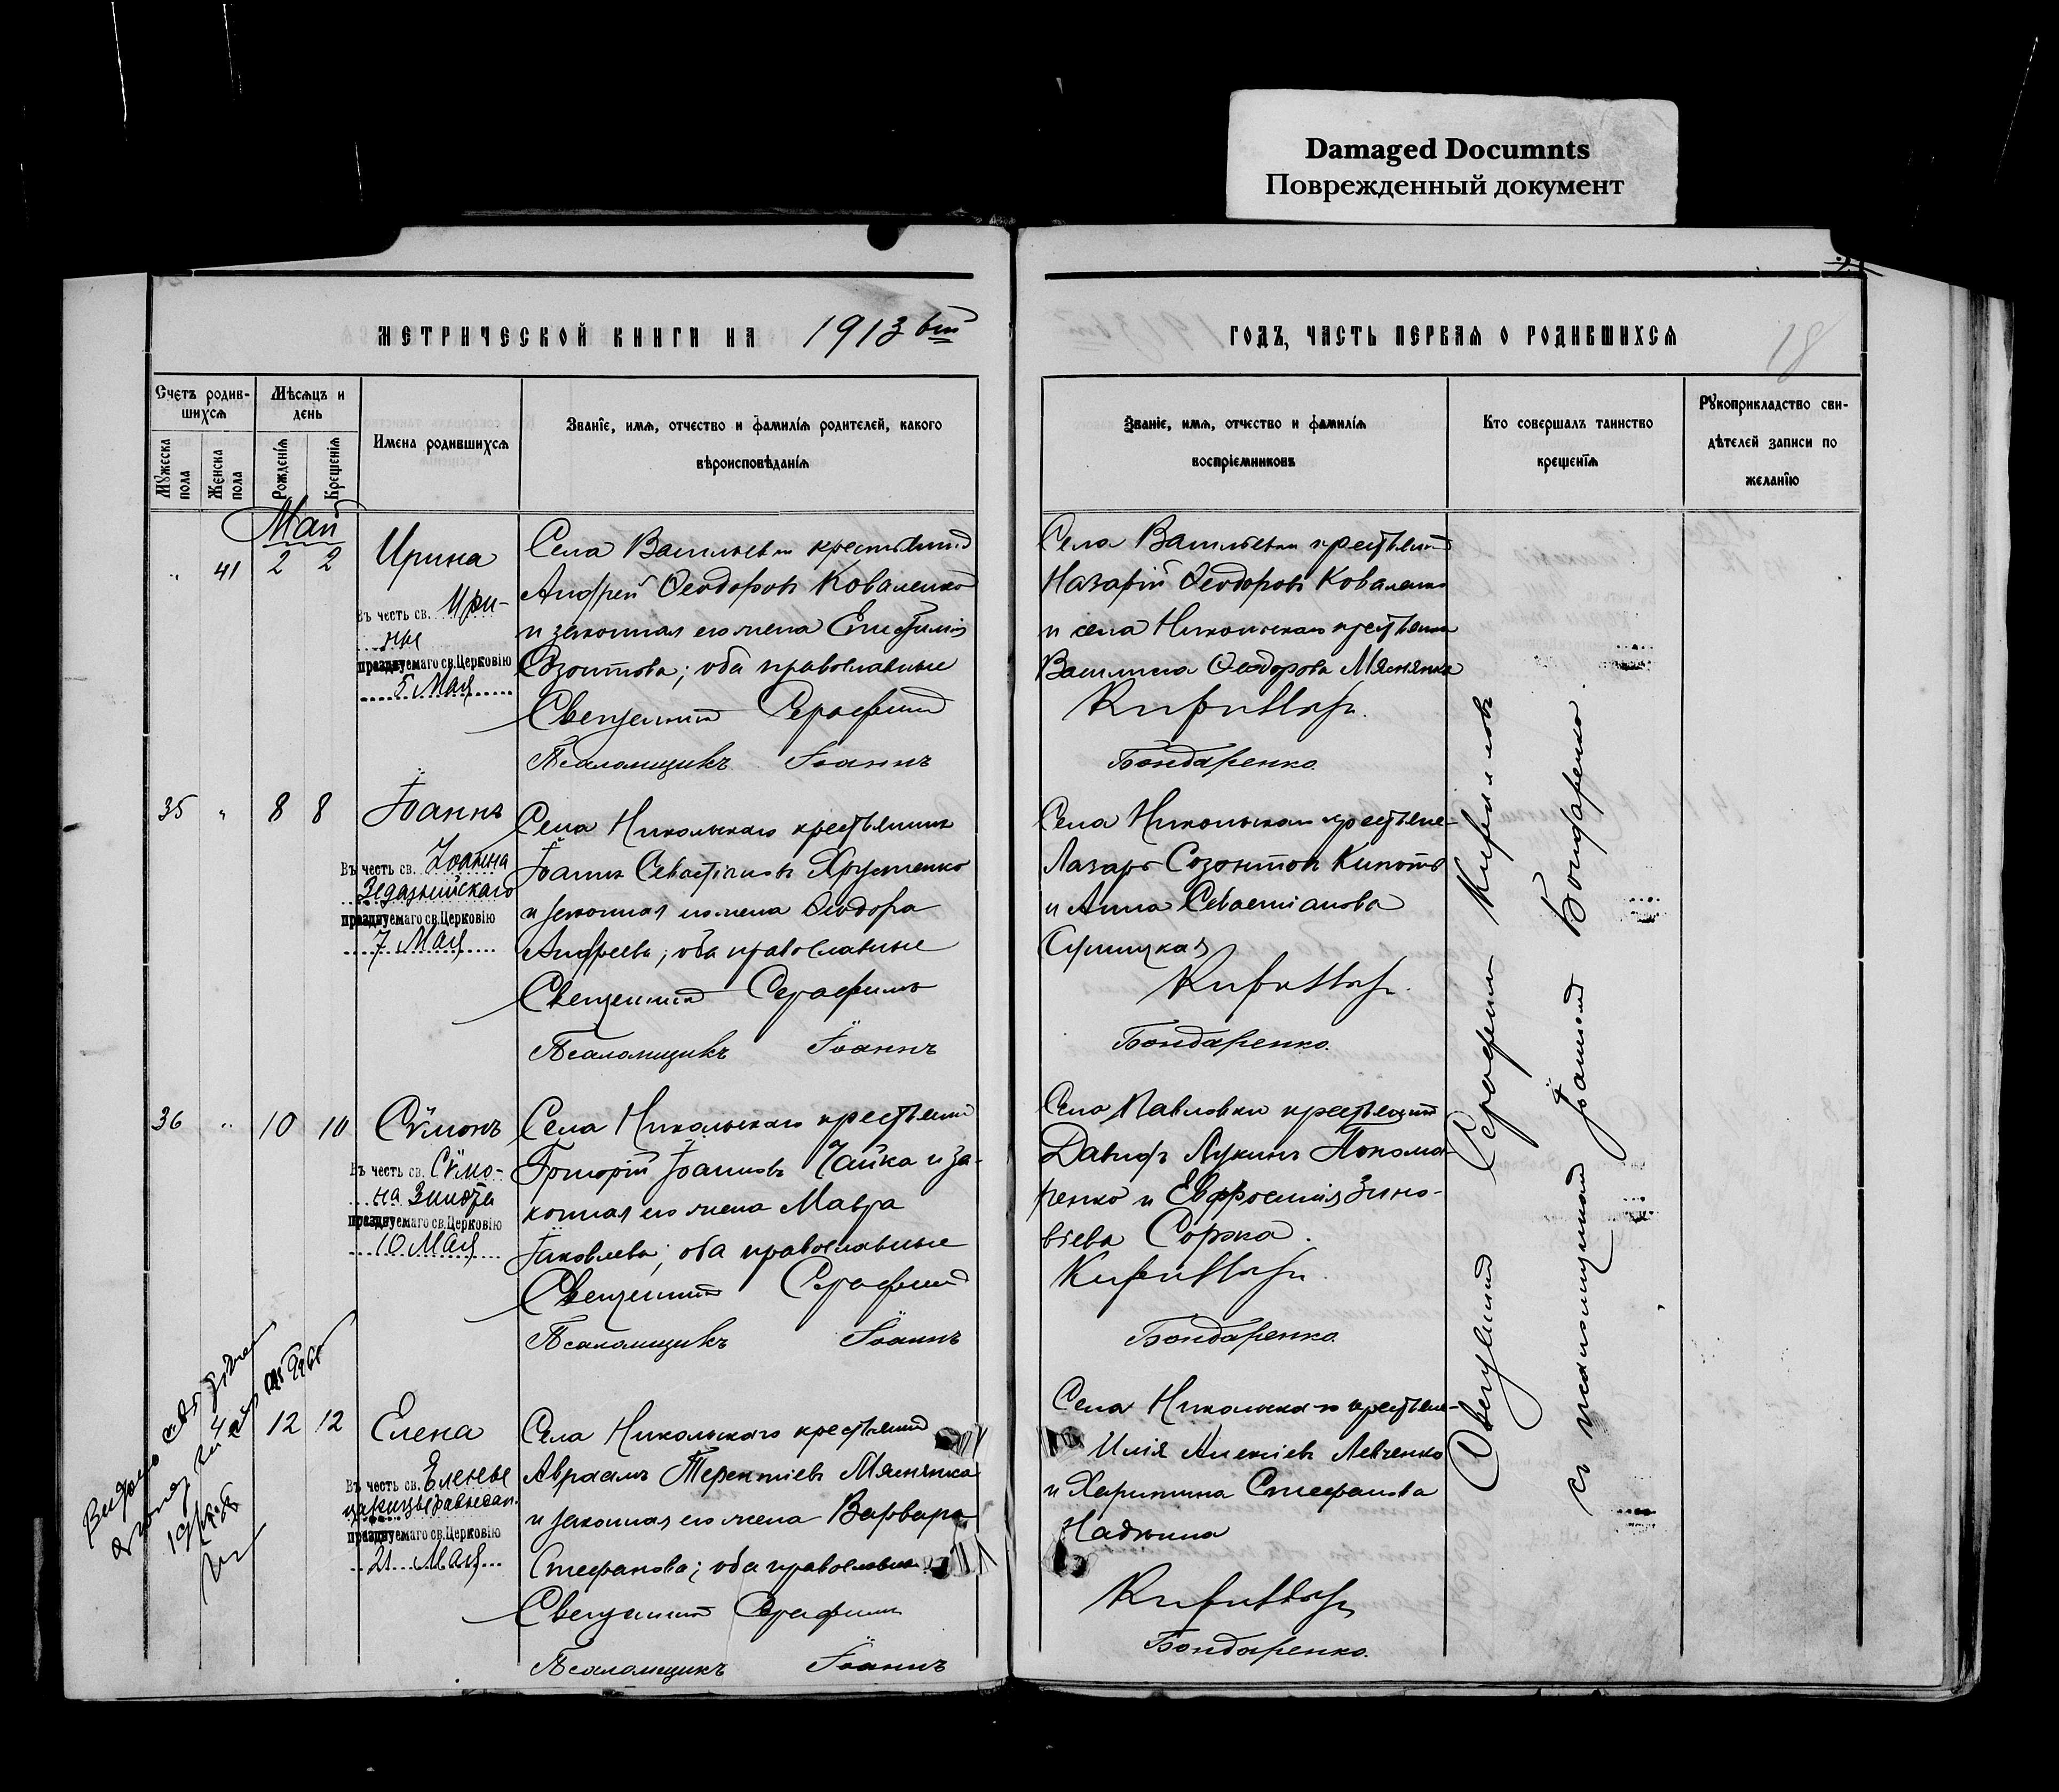 Damaged Documnts
Поврежденный документ
МЕТРИЧЕСКОЙ КНИГИ НА 1913 ГОДЪ, ЧАСТЬ ПЕРВАЯ О РОДИВШИХСЯ
18
Счетъ родив-
шихся
Мѣсяцъ и
день
Мужеска
пола
Женска
пола
Рожденія
Крещенія
Имена родившихся
Званіе, имя, отчество и фамилія родителей, какого
вѣроисповѣданія
Званіе, имя, отчество и фамилія
воспріемниковъ
Кто совершалъ таинство
крещенія
Рукоприкладство сви-
дѣтелей записи по
желанію
Май
" 41 2 2 Ирина
Въ честь св. Ири-
ны
празднуемаго св. Церковію
5 Мая
Села Васильевки крестьянинъ
Андрей Ѳеодоровъ Коваленко
и законная его жена Епистимія
Созонтова; оба православные
Священникъ Серафимъ
Псаломщикъ Іоаннъ
Села Васильевки крестьянинъ
Назарій Ѳеодоровъ Коваленко
и села Никольскаго крестьянка
Василиса Ѳеодорова Мяснянка
Бондаренко.
35 " 8 8 Іоаннъ
Въ честь св. Іоанна
Зедазнійскаго
празднуемаго св. Церковію
7 Мая
Села Никольскаго крестьянинъ
Іоаннъ Севастіановъ Хрустенко
и законная его жена Ѳеодора
Андреева; оба православные
Священникъ Серафимъ
Псаломщикъ Іоаннъ
Села Никольскаго крестьяне
Лазарь Созонтовъ
и Анна Севастианова
Бондаренко.
36 " 10 10 Сѵмонъ
Въ честь св. Сѵмо-
на Зилота
празднуемаго св. Церковію
10 Мая
Села Никольскаго крестьянинъ
Григорій Іоанновъ Чайка и за-
конная его жена Мавра
Іаковлева; оба православные
Священникъ Серафимъ
Псаломщикъ Іоаннъ
Села Павловки крестьянинъ
Давидъ Лукинъ Понома-
ренко и Евфросинія Зино-
віева Соржа.
Бондаренко.
12 12 Елена
Въ честь св. Елены
царицы равноап.
празднуемаго св. Церковію
21 Мая
Села Никольскаго крестьянинъ
Авраамъ Терентіевъ Мяснянка
и законная его жена Варвара
Стефанова; оба православные
Священникъ Серафимъ
Псаломщикъ Іоаннъ
Села Никольскаго крестьяне
Илія Алексіевъ Левченко
и Харитина Стефанова
Бондаренко.
Священникъ Серафимъ Кирилловъ
съ псаломщикомъ Іоанномъ Бондаренко.